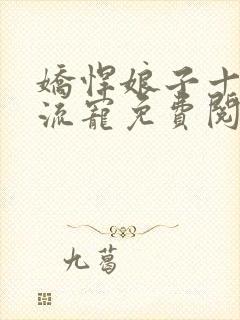 嬌悍娘子十
流寵免費閱
九葛